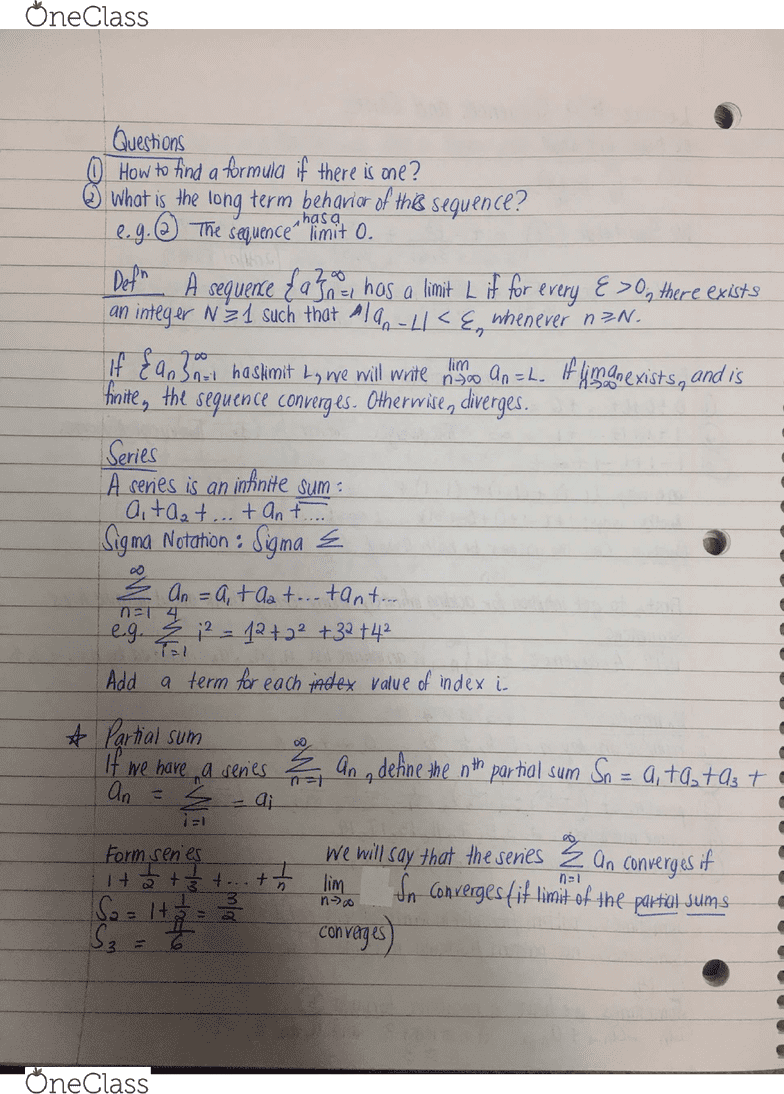 OneClass
Questions
① How to find a formula if there is one?
② What is the long term behavior of this sequence?
e.g. ② The sequence ^has a limit 0.
Defⁿ A sequence {a}ⁿ∞ₙ₌₁ has a limit L if for every ε > 0, there exists
an integer N ≥ 1 such that |aₙ - L| < ε, whenever n ≥ N.
If {aₙ}∞ₙ₌₁ has limit L, we will write lim n→∞ aₙ = L. If lim n→∞ aₙ exists, and is
finite, the sequence converges. Otherwise, diverges.
Series
A series is an infinite sum:
a₁ + a₂ + ... + aₙ + ....
Sigma Notation: Sigma Σ
∞ Σ n=1 aₙ = a₁ + a₂ + ... + aₙ + ...
e.g. 4 Σ i=1 i² = 1² + 2² + 3² + 4²
Add a term for each index value of index i.
☆ Partial sum
If we have a series ∞ Σ n=1 aₙ, define the nᵗʰ partial sum Sₙ = a₁ + a₂ + a₃ +
aₙ = n Σ i=1 = aᵢ
Form series
1 + 1/2 + 1/3 + ... + 1/n
S₂ = 1 + 1/2 = 3/2
S₃ = 11/6
we will say that the series ∞ Σ n=1 aₙ converges if
lim n→∞ Sₙ converges (if limit of the partial sums
converges)
OneClass